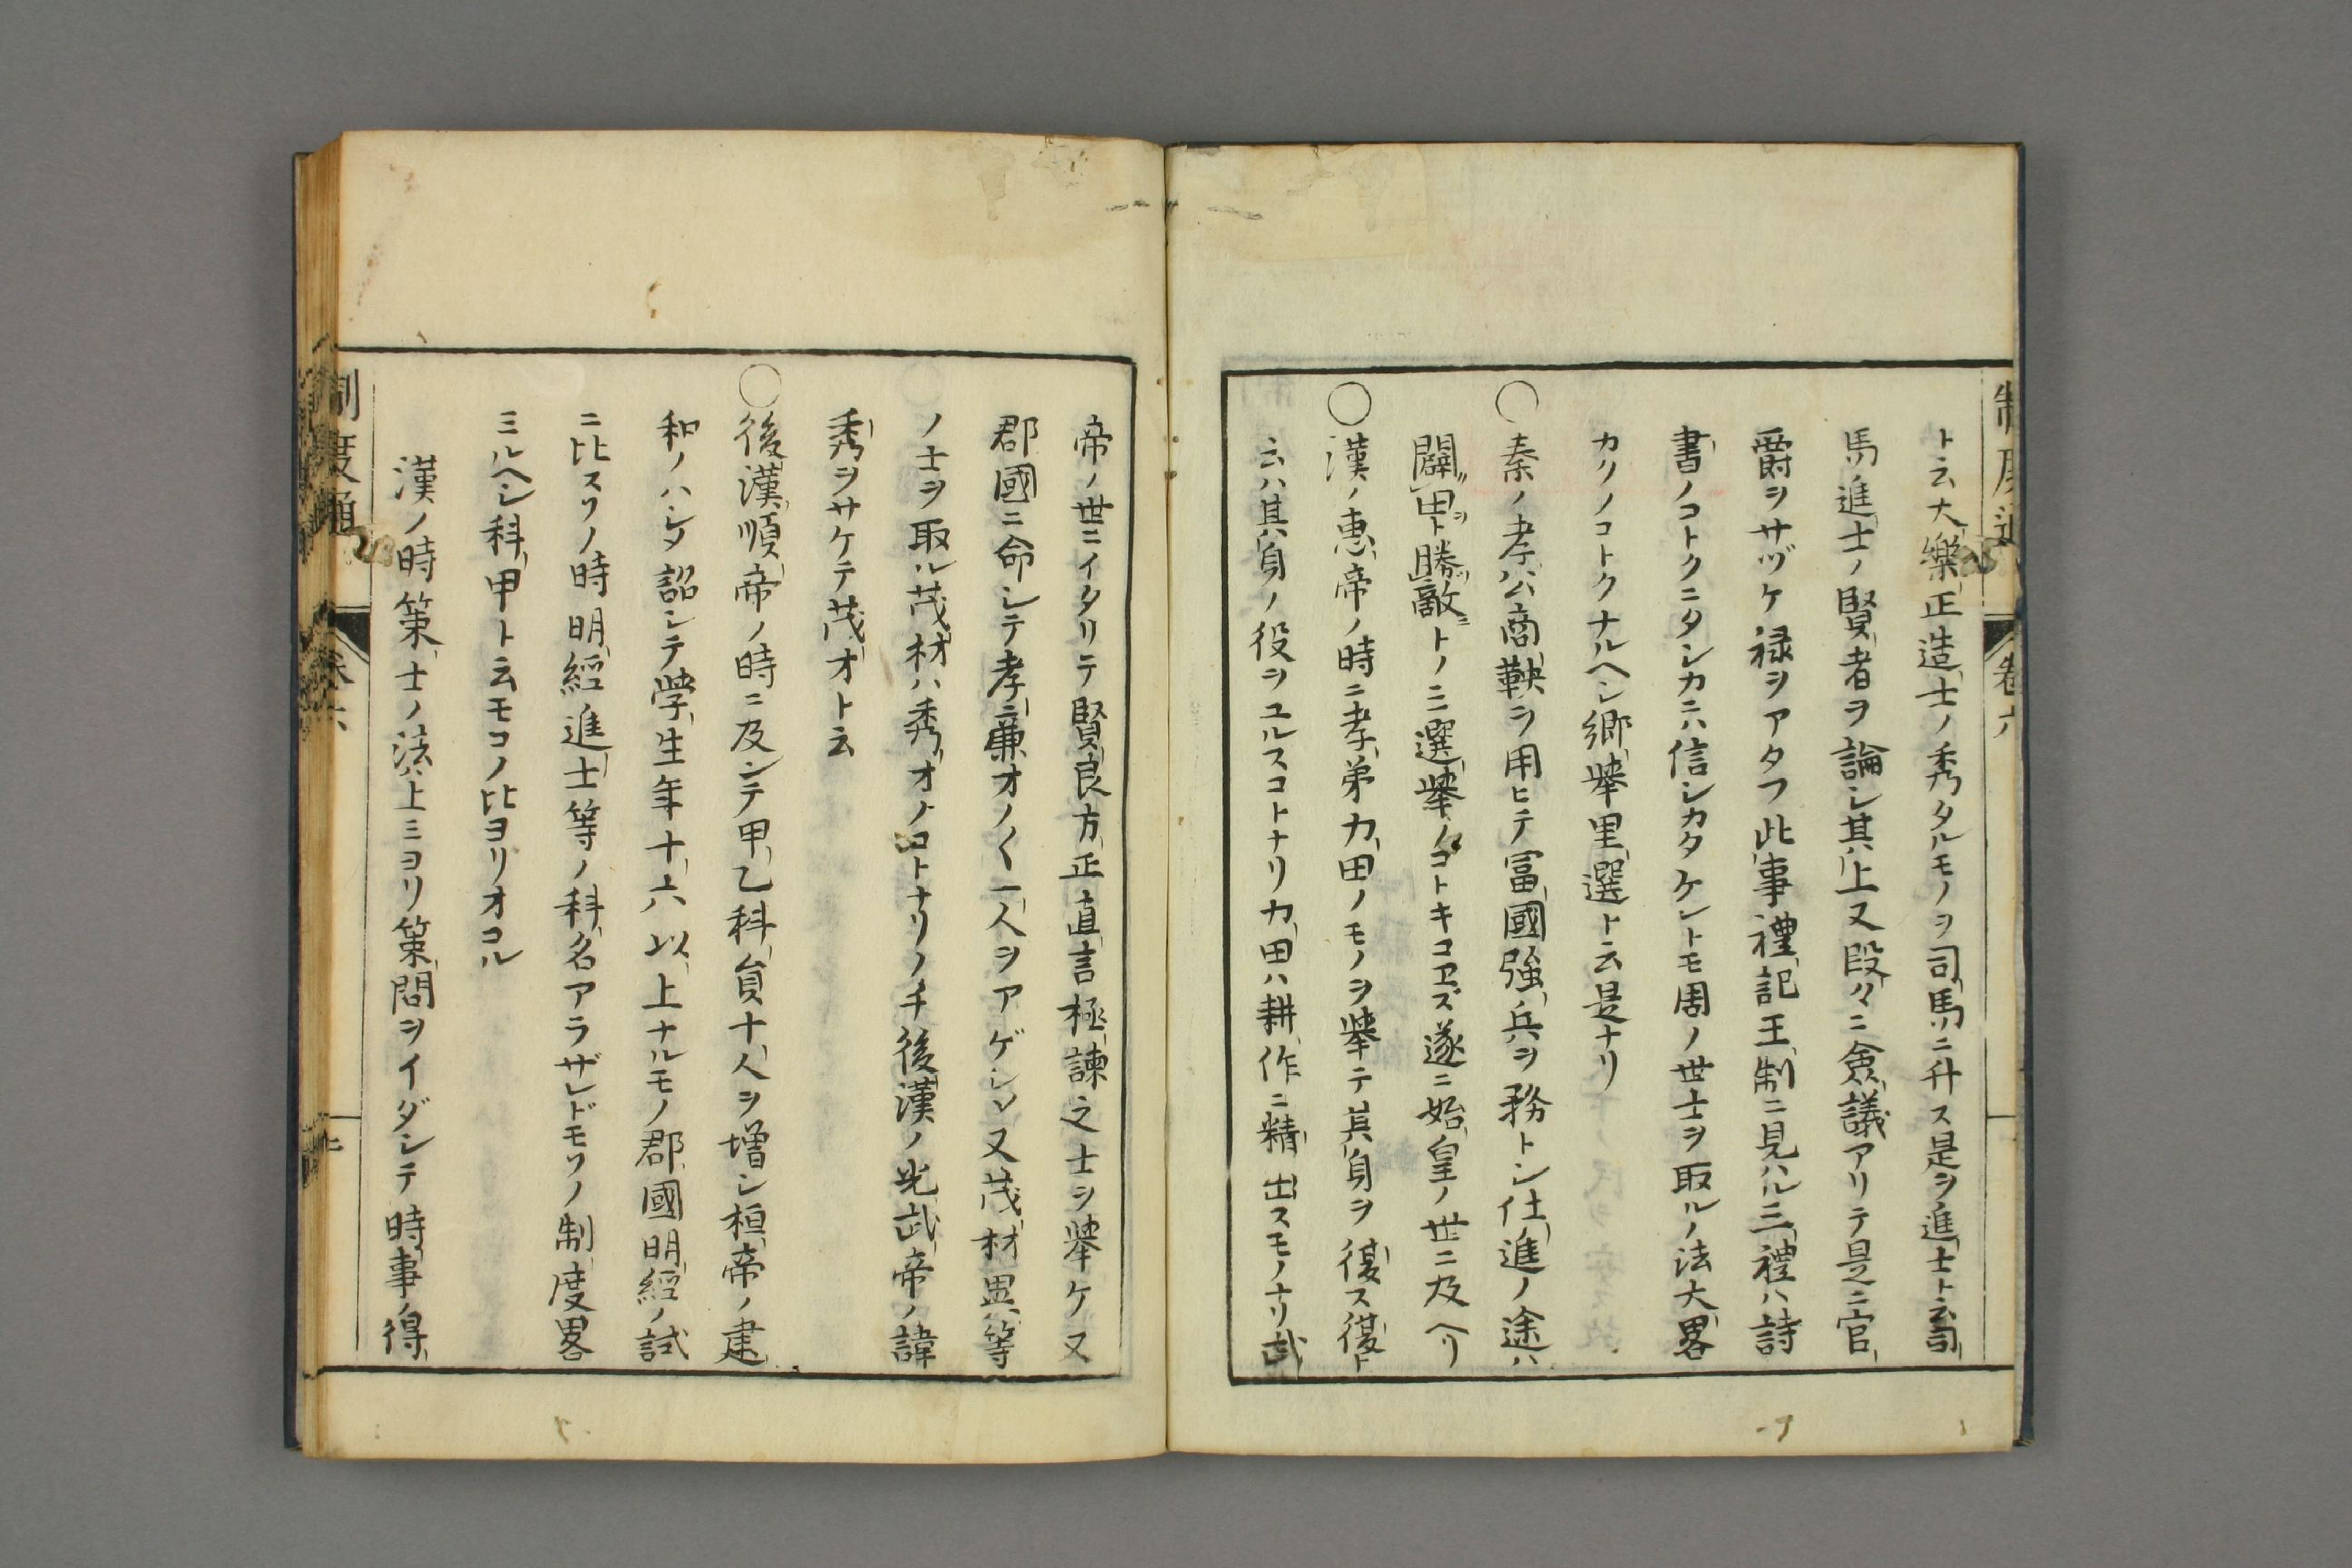 制度通 卷六
ト云大樂正造士ノ秀タルモノヲ司馬ニ升ス是ヲ進士ト云司
馬進士ノ賢者ヲ論シ其上又段々ニ僉議アリテ是ニ官
爵ヲサヅケ禄ヲアタフ此事禮記王制ニ見ハル三禮ハ詩
書ノコトクニタシカニハ信シカタケレトモ周ノ世士ヲ取ルノ法大畧
カリノコトクナルヘシ郷舉里選ト云是ナリ
○秦ノ孝公商鞅ヲ用ヒテ冨國強兵ヲ務トシ仕進ノ途ハ
闢田ト勝敵トノニ選舉ノコトキコヱズ遂ニ始皇ノ世ニ及ヘリ
○漢ノ惠帝ノ時ニ孝弟力田ノモノヲ舉テ其身ヲ復ス復ト
云ハ其身ノ役ヲユルスコトナリ力田ハ耕作ニ精出スモノナリ武
帝ノ世ニイタリテ賢良方正直言極諫之士ヲ舉ケ又
郡國ニ命シテ孝廉オノ〱一人ヲアゲシメ又茂材異等
ノ士ヲ取ル茂材ハ秀才ノコトナリノチ後漢ノ光武帝ノ諱
秀ヲサケテ茂才ト云
○後漢順帝ノ時ニ及シテ甲乙科員十人ヲ増シ桓帝ノ建
和ノハシメ詔シテ学生年十六以上ナルモノ郡國明經ノ試
ニ比スソノ時明經進士等ノ科名アラザレドモソノ制度畧
ミルヘシ科甲ト云モコノ比ヨリオコル
漢ノ時策士ノ法上ミヨリ策問ヲイダシテ時事ノ得
制度通 卷六 二